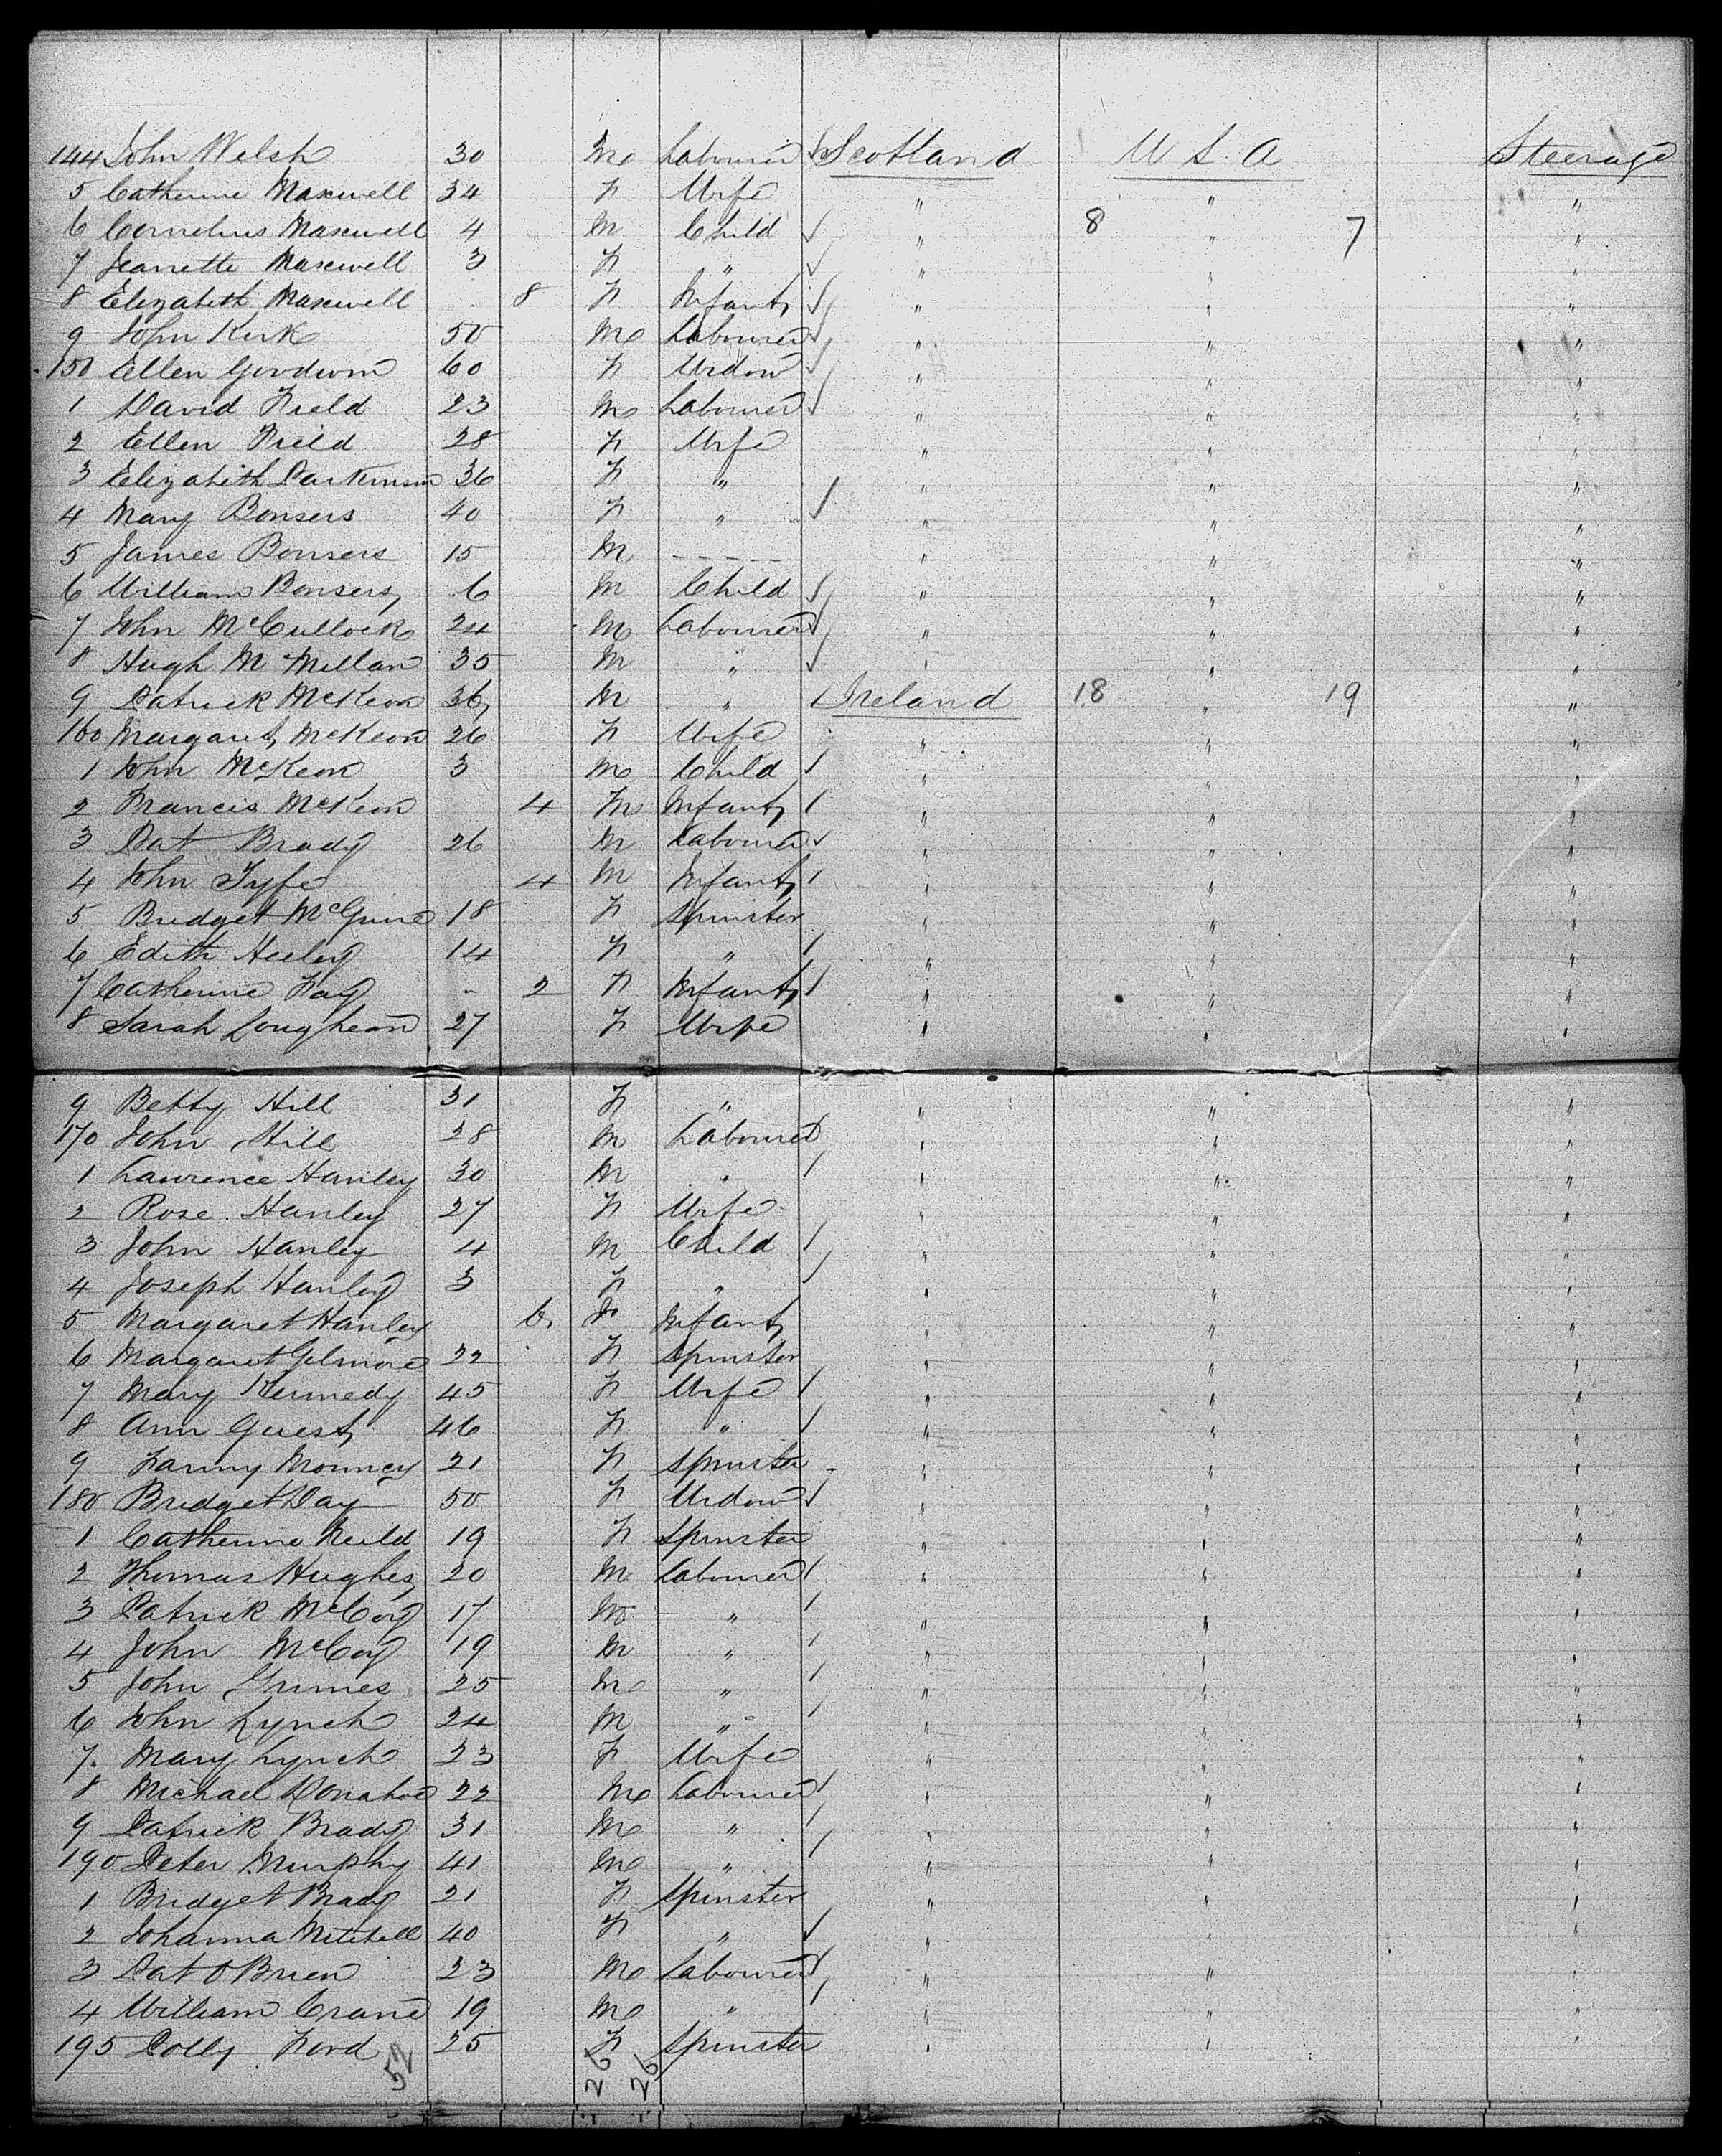 144 John Welsh 30 M Labourer Scotland U S A Steerage
5 Catherine Maxwell 34 F Wife " " "
6 Cornelius Maxwell 4 M Child " 8 " 7 "
7 Jeanette Maxwell 3 F " " " "
8 Elizabeth Maxwell 8 F Infant " " "
9 John Kirk 50 M Labourer " " "
150 Ellen Goodwin 60 F Widow " " "
1 David Field 23 M Labourer " " "
2 Ellen Field 28 F Wife " " "
3 Elizabeth Parkinson 36 F " " " "
4 Mary Bonsers 40 F " " " "
5 James Bonsers 15 M - - - - " " "
6 William Bonsers 6 M Child " " "
7 John McCullock 24 M Labourer " " "
8 Hugh McMillan 35 M " " " "
9 Patrick McKeon 36 M " Ireland 18 " 19 "
160 Margaret McKeon 26 F Wife " " "
1 John McKeon 3 M Child " " "
2 Francis McKeon 4 M Infant " " "
3 Pat Brady 26 M Labourer " " "
4 John Fyfe 4 M Infant " " "
5 Bridget McGuire 18 F Spinster " " "
6 Edith Heeley 14 F " " " "
7 Catherine Fay - 2 F Infant " " "
8 Sarah Loughean 27 F Wife " " "
9 Betty Hill 31 F " " " "
170 John Hill 28 M Labourer " " "
1 Lawrence Hanley 30 M " " " "
2 Rose Hanley 27 F Wife " " "
3 John Hanley 4 M Child " " "
4 Joseph Hanley 3 F " " " "
5 Margaret Hanley 6 F Infant " " "
6 Margaret Gilmore 22 F Spinster " " "
7 Mary Kennedy 45 F Wife " " "
8 Ann Guest 46 F " " " "
9 Fanny Mouncey 21 F Spinster " " "
180 Bridget Day 50 F Widow " " "
1 Catherine Neild 19 F Spinster " " "
2 Thomas Hughes 20 M Labourer " " "
3 Patrick McCoy 17 M " " " "
4 John McCoy 19 M " " " "
5 John Grimes 25 M " " " "
6 John Lynch 24 M " " " "
7 Mary Lynch 23 F Wife " " "
8 Michael Donahoe 22 M Labourer " " "
9 Patrick Brady 31 M " " " "
190 Peter Murphy 41 M " " " "
1 Bridget Brady 21 F Spinster " " "
2 Johanna Mitchell 40 F " " " "
3 Pat O Brien 23 M Labourer " " "
4 William Crane 19 M " " " "
195 Polly Ford 25 F Spinster " " "
52 26 26